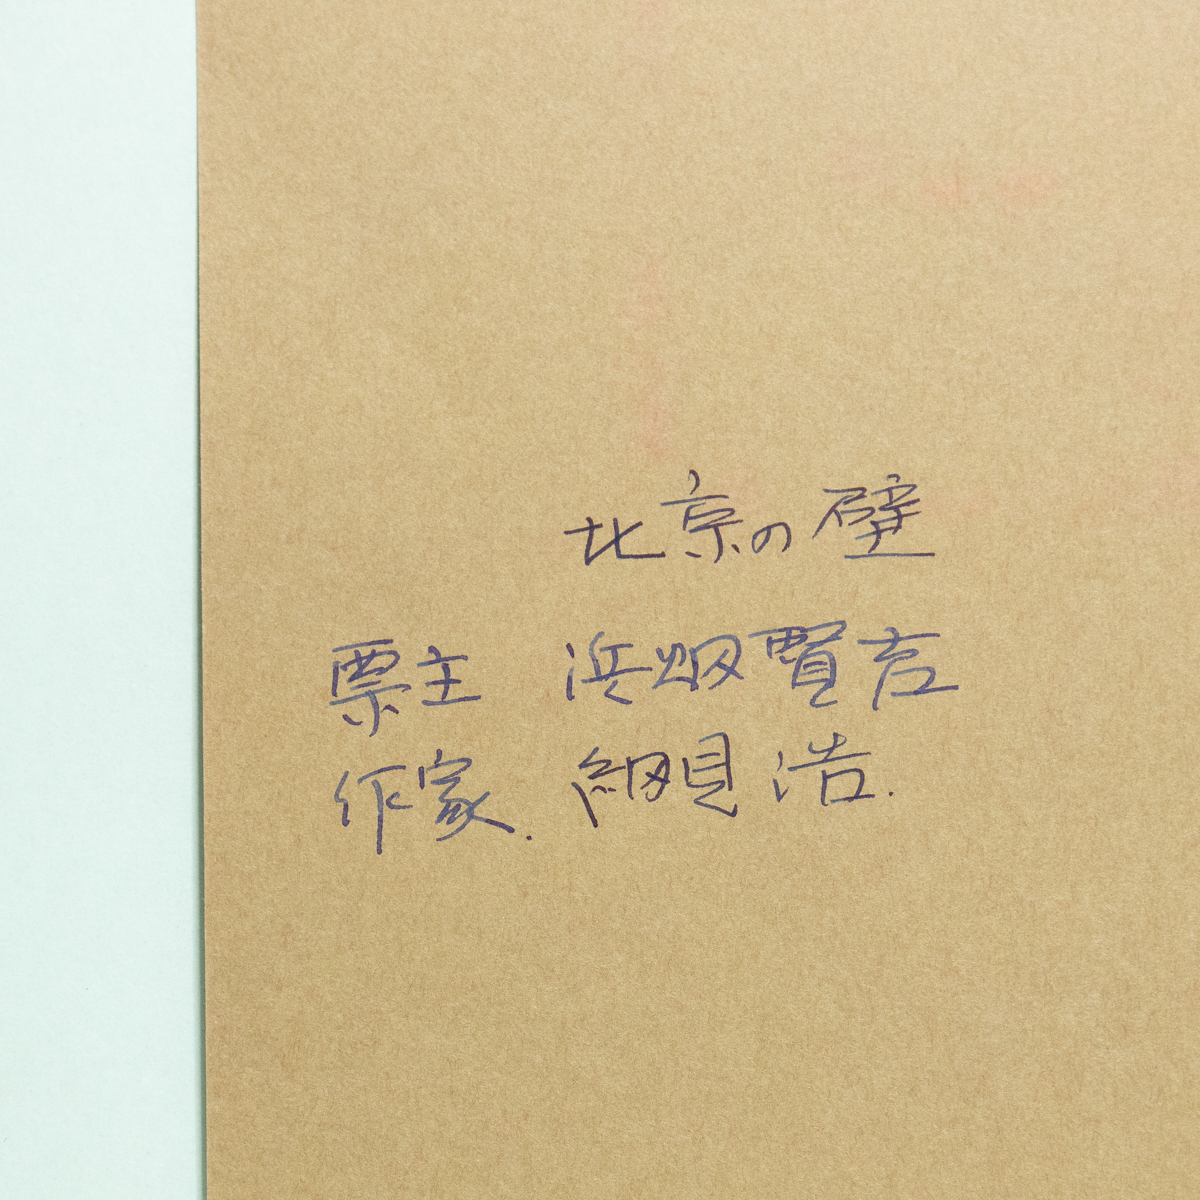 北京の壁
票主 浜畑賢吉
作家. 細見浩.